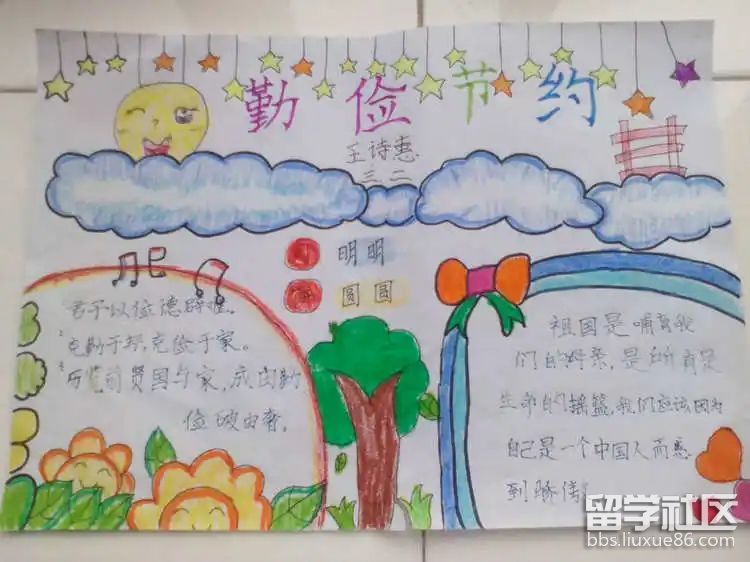 勤俭节约
王诗惠
三.二
明明
圆圆
君子以俭德辟难。
克勤于邦,克俭于家。
历览前贤国与家,成由勤
俭破由奢。
祖国是哺育我
们的母亲,是所有
生命的摇篮,我们应该因为
自己是一个中国人而感
到骄傲
留学社区
bbs.liuxue86.com